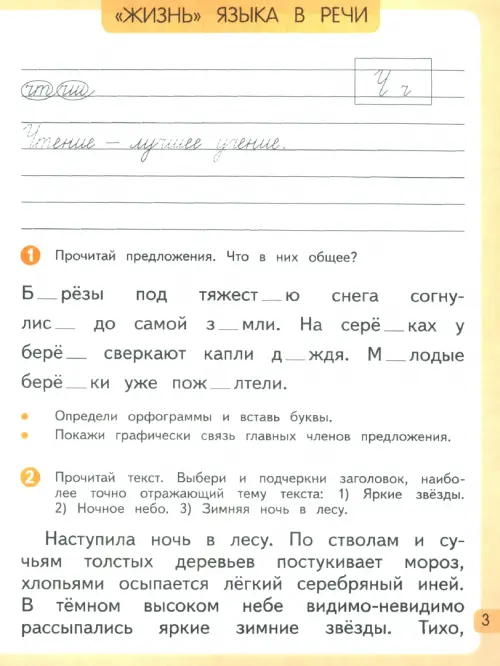 «ЖИЗНЬ» ЯЗЫКА В РЕЧИ
Ч ч
чт чи
Чтение – лучшее учение.
1 Прочитай предложения. Что в них общее?
Б__рёзы под тяжест__ю снега согну-
лис__ до самой з__мли. На серё__ках у
берё__ сверкают капли д__ждя. М__лодые
берё__ки уже пож__лтели.
• Определи орфограммы и вставь буквы.
• Покажи графически связь главных членов предложения.
2 Прочитай текст. Выбери и подчеркни заголовок, наибо-
лее точно отражающий тему текста: 1) Яркие звёзды.
2) Ночное небо. 3) Зимняя ночь в лесу.
Наступила ночь в лесу. По стволам и су-
чьям толстых деревьев постукивает мороз,
хлопьями осыпается лёгкий серебряный иней.
В тёмном высоком небе видимо-невидимо
рассыпались яркие зимние звёзды. Тихо,
3